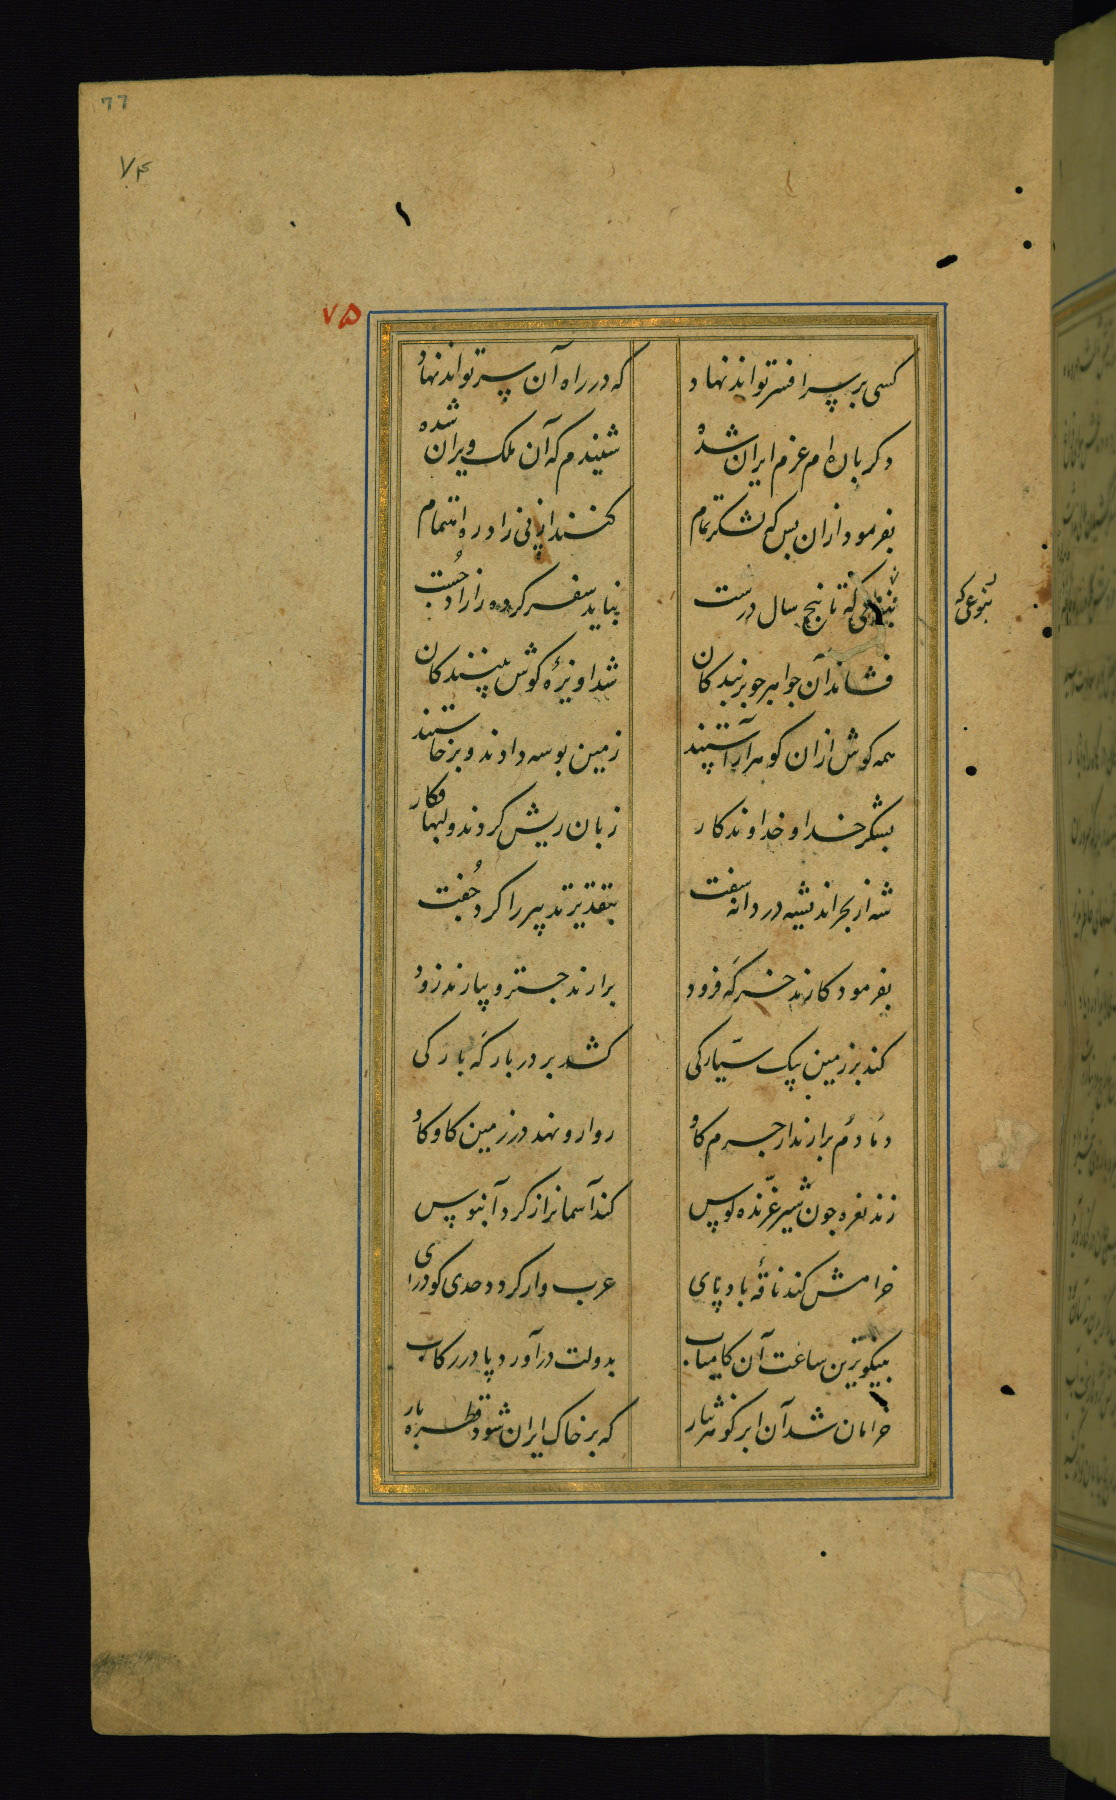 77
۷۴
۷۵
کسی بر سر افسر تواند نهاد که در راه آن سر تواند نهاد
دکر باره‌ام عزم ایران شده شنیدم که آن ملک ویران شده
بفرمود ازان بس که لشکر تمام کنند از پی زاد ره اهتمام
که تا پنج سال درست نباید سفر کرده را زاد جست
بنوعی که
فشاند آن جواهر جو بر بندکان شد اویزهٔ کوش
همه کوش ازان کوهر آراستند زمین بوسه دادند و برخاستند
بشکر خدا و خداوندکار زبان ریش کردند و لبها فکار
شه از بحر اندیشه در دانه سفت بتقدیر تدبیر را کرد جفت
بفرمود کارند خرکه فرود برارند جستر و بیارند زود
کند بر زمین پیک سیارکی کشد بر در بارکه بارکی
دمادم برارند از جرم کاو روارو نهد در زمین کاوکاو
زند نعره جون شیر غرنده کوس کند آسمانرا ز کرد آبنوس
خرامش کند ناقهٔ بادپای عرب وار کردد حدی کو درای
بنیکوترین ساعت آن کامیاب بدولت درآورد پا در رکاب
خرامان شد آن ابر کوهر نثار که بر خاک ایران شود قطره بار